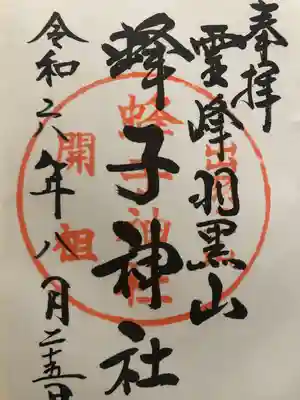 奉拝
霊峰羽黒山
蜂子神社
令和六年八月二十五日
開祖
蜂子神社